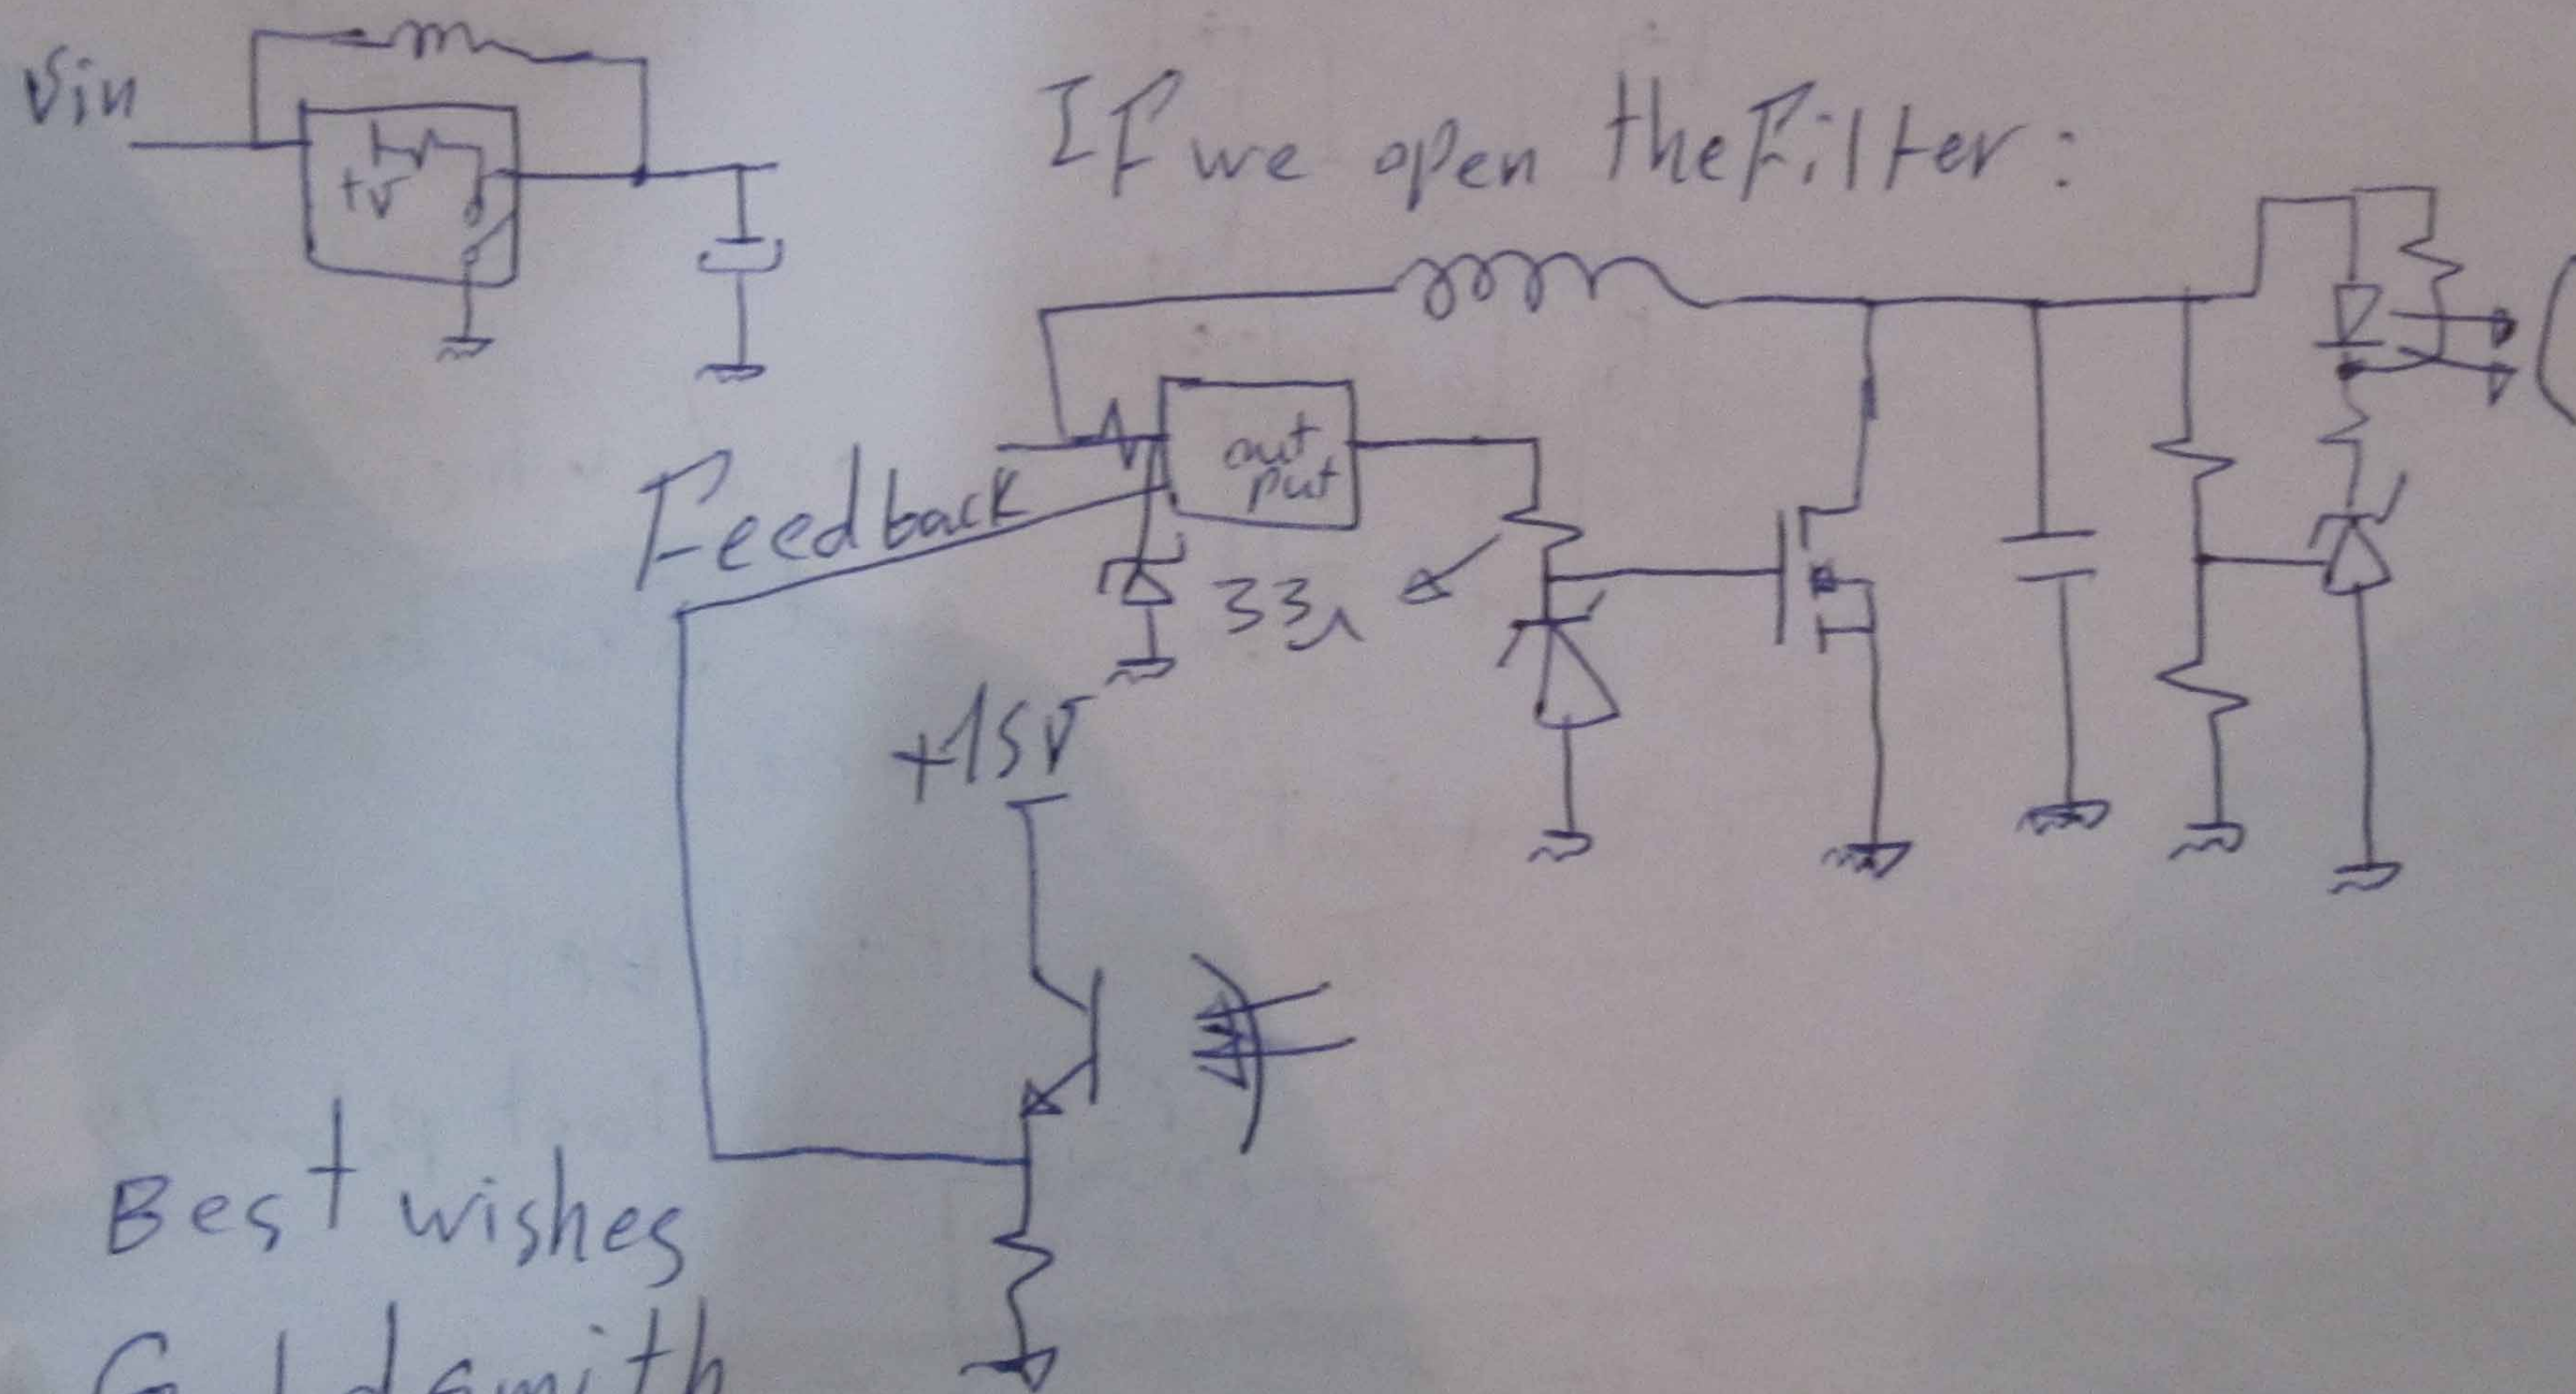 Vin
+V
If we open the Filter:
out
put
Feedback
33Ω
+15V
Best wishes
Goldsmith